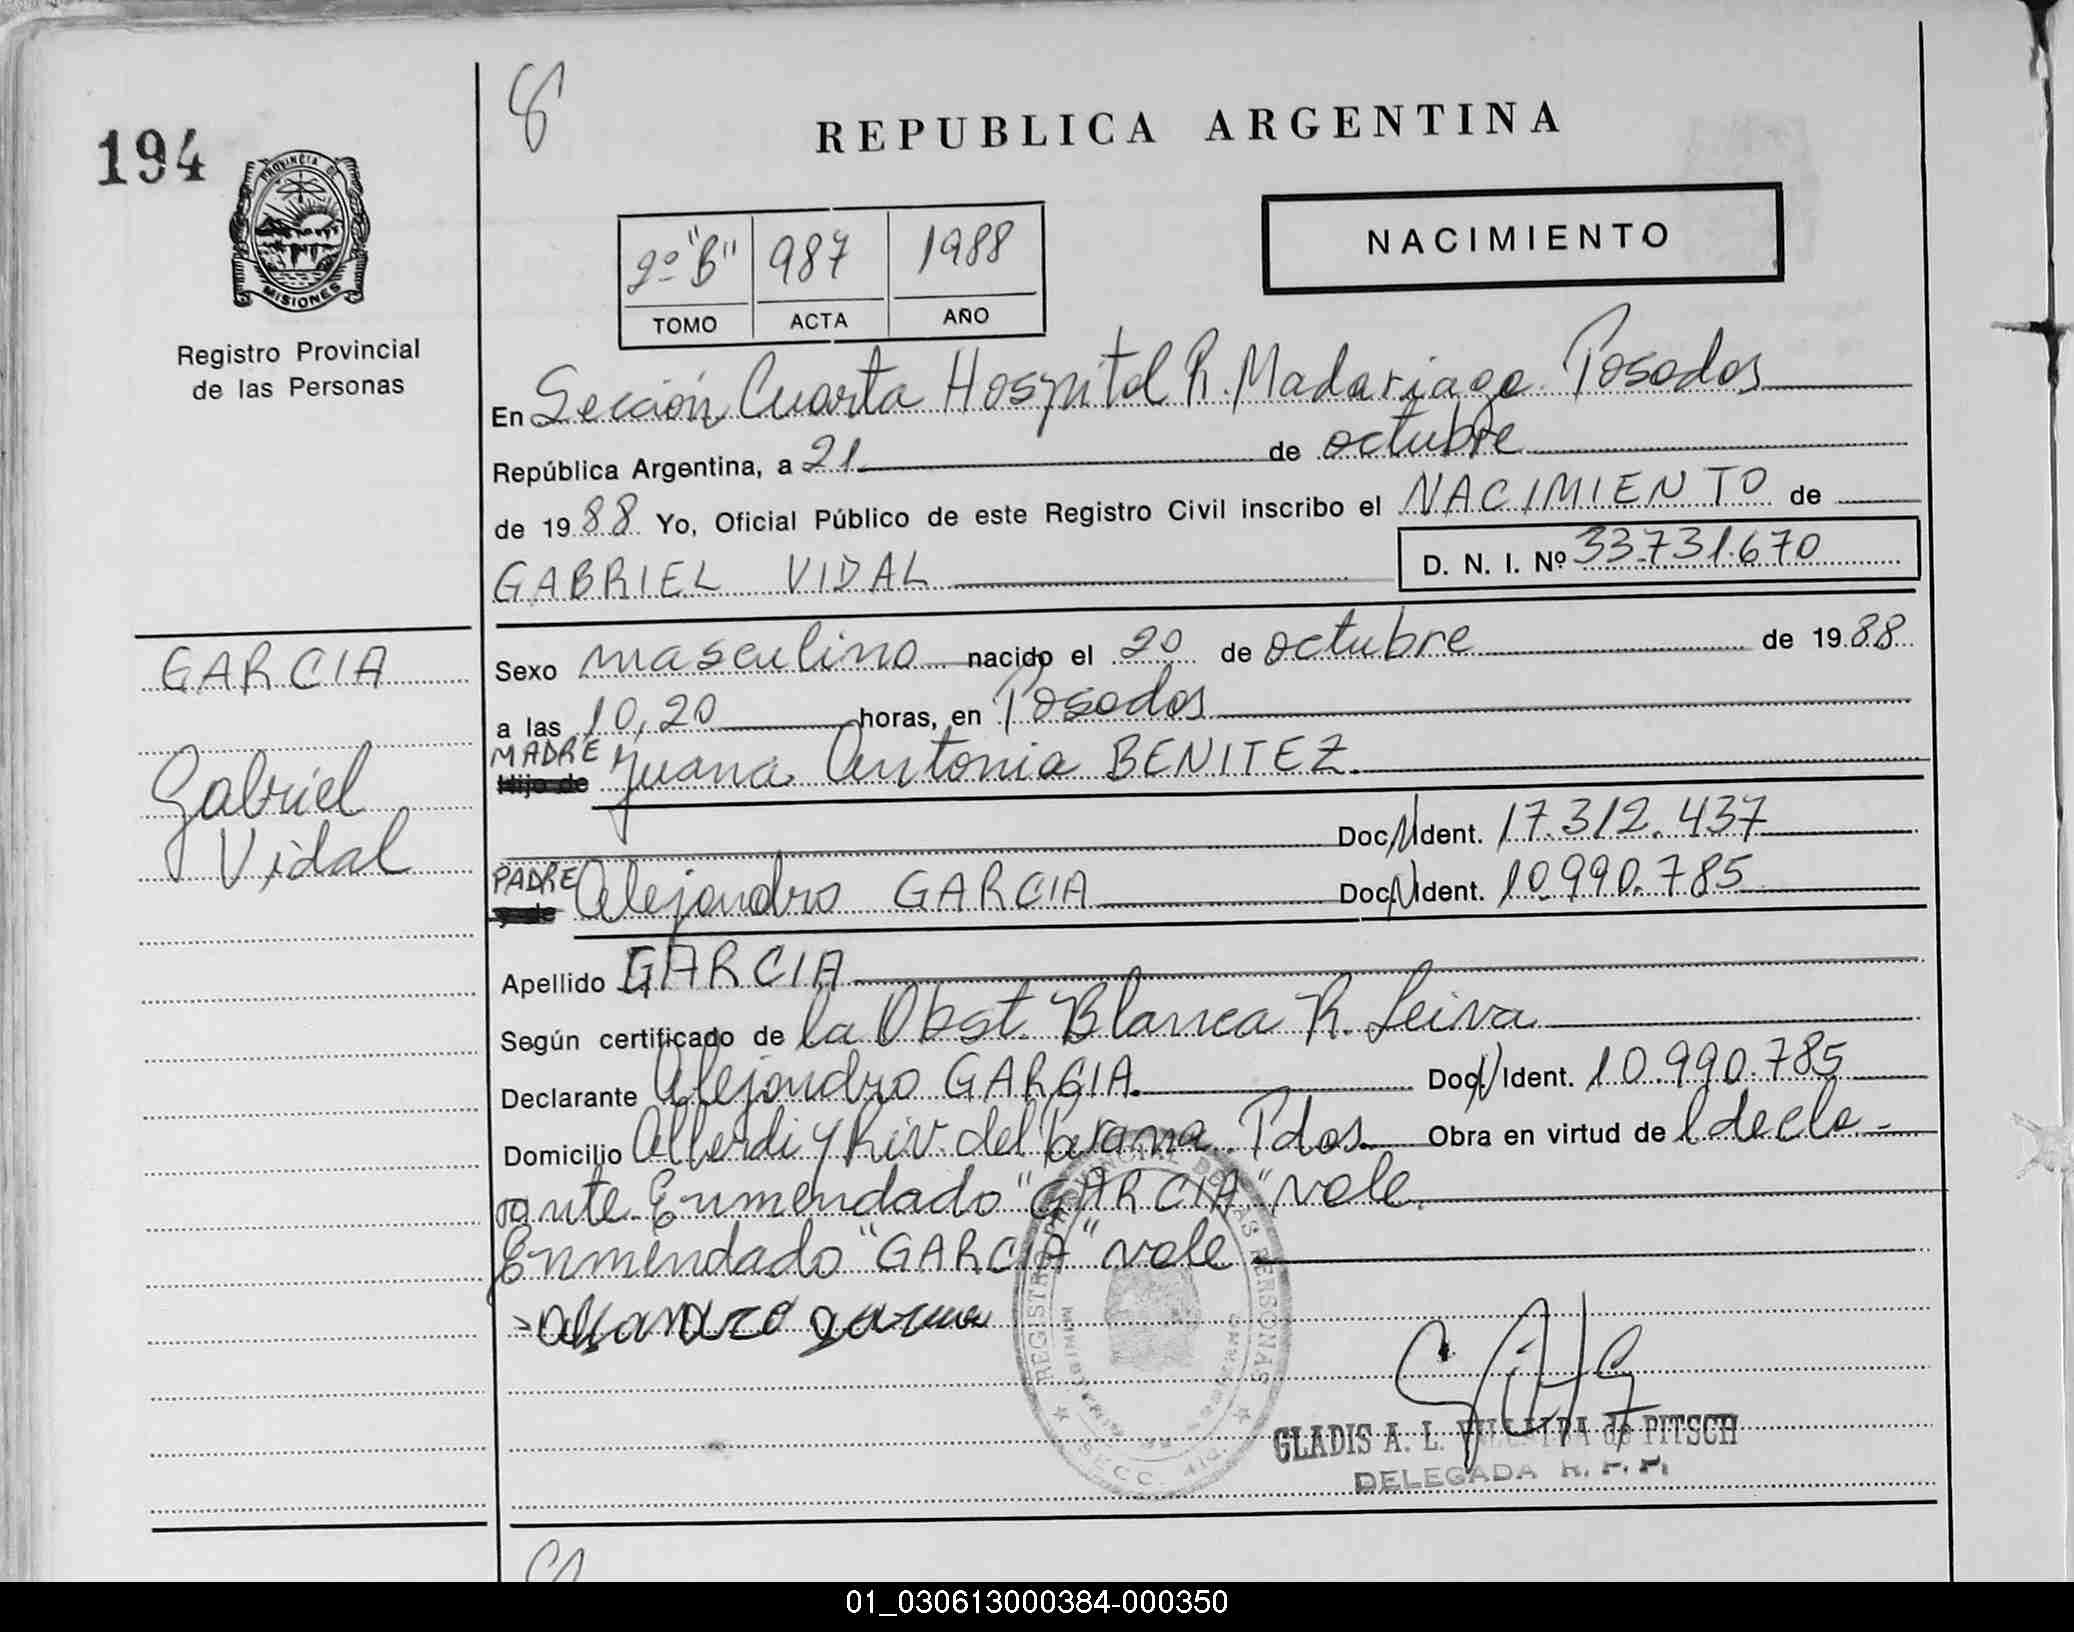 194
PROVINCIA DE
MISIONES
Registro Provincial
de las Personas
GARCIA
Gabriel
Vidal
8
REPUBLICA ARGENTINA
2º "B" 987 1988
TOMO ACTA AÑO
NACIMIENTO
En Sección Cuarta Hospital R. Madariaga. Posadas
República Argentina, a 21 de octubre
de 1988 Yo, Oficial Público de este Registro Civil inscribo el NACIMIENTO de
GABRIEL VIDAL D. N. I. Nº 33.731.670
Sexo masculino nacido el 20 de octubre de 1988
a las 10,20 horas, en Posadas
MADRE
Hijo de Juana Antonia BENITEZ
Doc. N Ident. 17.312.437
PADRE
y de Alejandro GARCIA Doc. N Ident. 10.990.785
Apellido GARCIA
Según certificado de la Obst. Blanca R. Leiva
Declarante Alejandro GARCIA. Doc. N Ident. 10.990.785
Domicilio Alberdi y Riv. del Parana. Pdas. Obra en virtud de l decla-
rante. Enmendado "GARCIA" vale.
Enmendado "GARCIA" vale
REGISTRO PROVINCIAL DE LAS PERSONAS
SECC. 4ta.
GLADIS A. L. VILLALBA de PITSCH
DELEGADA R. P. P.
01_030613000384-000350